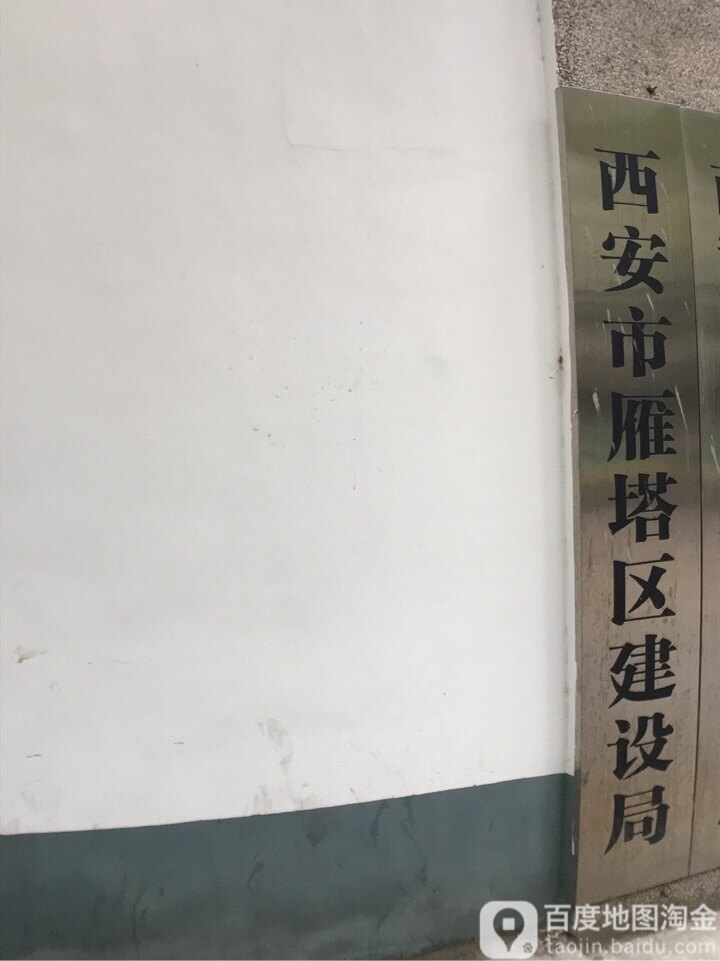 西安市雁塔区建设局
百度地图淘金
taojin.baidu.com